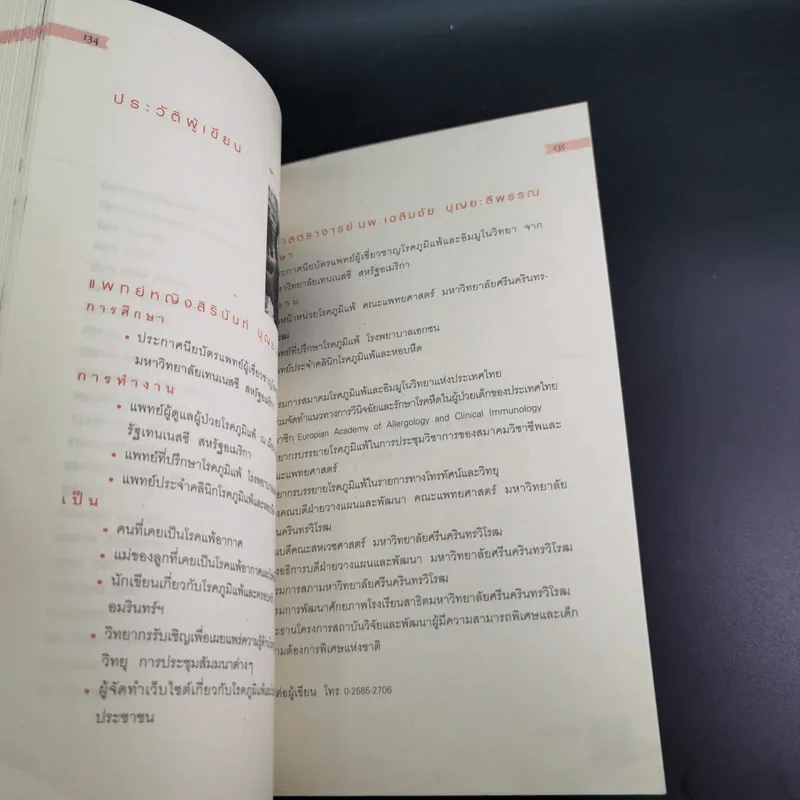 134
ประวัติผู้เขียน
แพทย์หญิงสิรินันท์ บุญย
การศึกษา
• ประกาศนียบัตรแพทย์ผู้เชี่ยวชาญโรค
มหาวิทยาลัยเทนเนสซี สหรัฐอเมริกา
การทำงาน
• แพทย์ผู้ดูแลผู้ป่วยโรคภูมิแพ้ ณ
รัฐเทนเนสซี สหรัฐอเมริกา
• แพทย์ที่ปรึกษาโรคภูมิแพ้ โรงพยาบาล
• แพทย์ประจำคลินิกโรคภูมิแพ้และหอบ
เป็น
• คนที่เคยเป็นโรคแพ้อากาศ
• แม่ของลูกที่เคยเป็นโรคแพ้อากาศและ
• นักเขียนเกี่ยวกับโรคภูมิแพ้และครอบครัว
อมรินทร์ฯ
• วิทยากรรับเชิญเพื่อเผยแพร่ความรู้ด้าน
วิทยุ การประชุมสัมมนาต่างๆ
• ผู้จัดทำเว็บไซต์เกี่ยวกับโรคภูมิแพ้และ
ประชาชน
135
าสตราจารย์ นพ.เฉลิมชัย บุญยะลีพรรณ
ษา
ระกาศนียบัตรแพทย์ผู้เชี่ยวชาญโรคภูมิแพ้และอิมมูโนวิทยา จาก
หาวิทยาลัยเทนเนสซี สหรัฐอเมริกา
งาน
หน้าหน่วยโรคภูมิแพ้ คณะแพทยศาสตร์ มหาวิทยาลัยศรีนครินทร-
โรฒ
พทย์ที่ปรึกษาโรคภูมิแพ้ โรงพยาบาลเอกชน
พทย์ประจำคลินิกโรคภูมิแพ้และหอบหืด
รมการสมาคมโรคภูมิแพ้และอิมมูโนวิทยาแห่งประเทศไทย
วมจัดทำแนวทางการวินิจฉัยและรักษาโรคหืดในผู้ป่วยเด็กของประเทศไทย
าชิก Europian Academy of Allergology and Clinical Immunology
ยากรบรรยายโรคภูมิแพ้ในการประชุมวิชาการของสมาคมวิชาชีพและ
ณะแพทยศาสตร์
ยากรบรรยายโรคภูมิแพ้ในรายการทางโทรทัศน์และวิทยุ
งคณบดีฝ่ายวางแผนและพัฒนา คณะแพทยศาสตร์ มหาวิทยาลัย
นครินทรวิโรฒ
ณบดีคณะสหเวชศาสตร์ มหาวิทยาลัยศรีนครินทรวิโรฒ
งอธิการบดีฝ่ายวางแผนและพัฒนา มหาวิทยาลัยศรีนครินทรวิโรฒ
รมการสภามหาวิทยาลัยศรีนครินทรวิโรฒ
รมการพัฒนาศักยภาพโรงเรียนสาธิตมหาวิทยาลัยศรีนครินทรวิโรฒ
ะธานโครงการสถาบันวิจัยและพัฒนาผู้มีความสามารถพิเศษและเด็ก
ามต้องการพิเศษแห่งชาติ
ต่อผู้เขียน โทร. 0-2585-2706